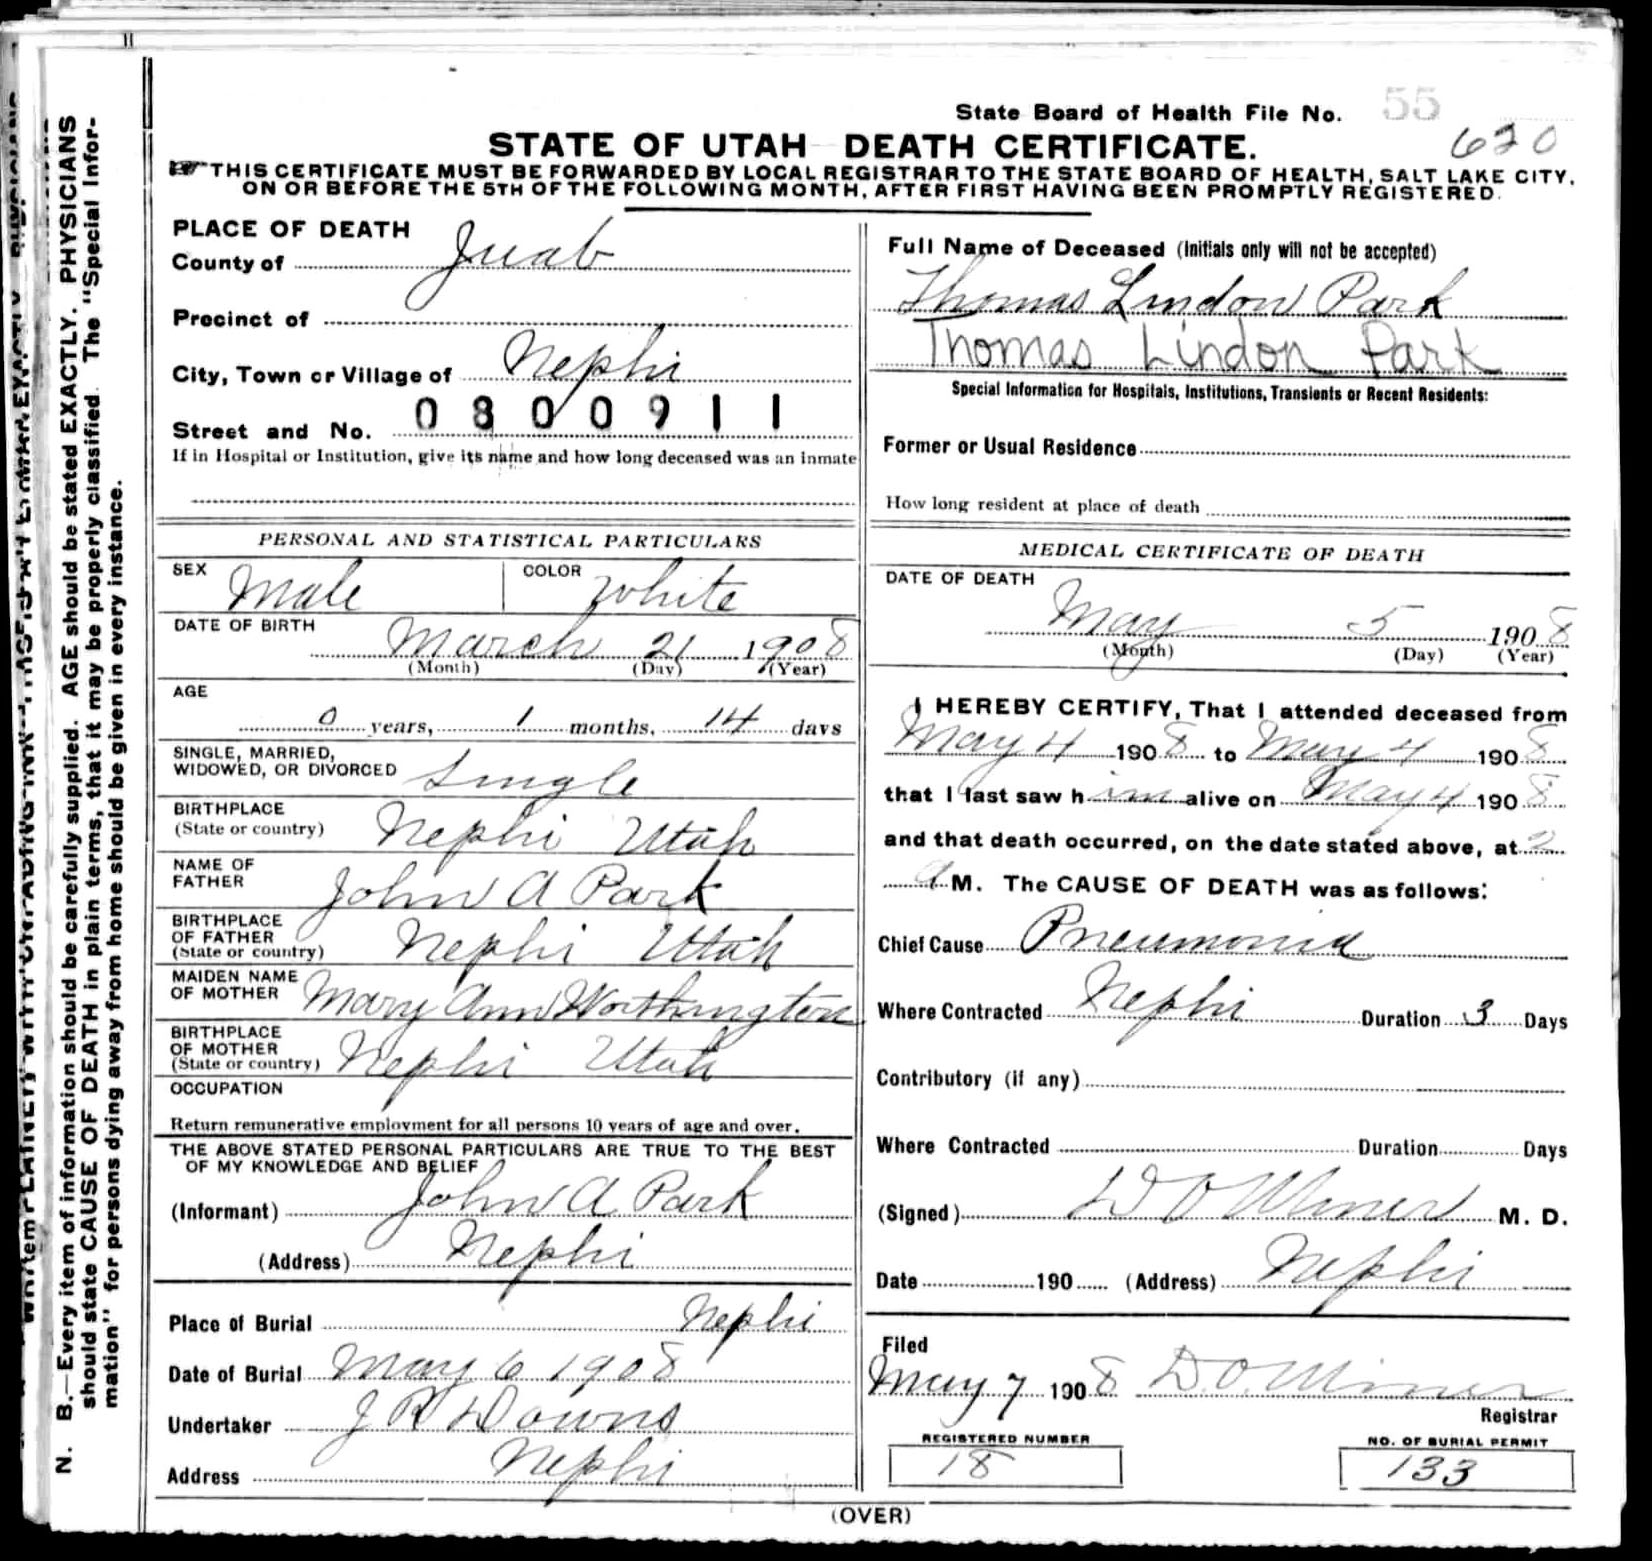 State Board of Health File No. 55
620
STATE OF UTAH DEATH CERTIFICATE.
THIS CERTIFICATE MUST BE FORWARDED BY LOCAL REGISTRAR TO THE STATE BOARD OF HEALTH, SALT LAKE CITY,
ON OR BEFORE THE 5TH OF THE FOLLOWING MONTH, AFTER FIRST HAVING BEEN PROMPTLY REGISTERED.
N. B.—Every item of information should be carefully supplied. AGE should be stated EXACTLY. PHYSICIANS
should state CAUSE OF DEATH in plain terms, that it may be properly classified. The "Special Infor-
mation" for persons dying away from home should be given in every instance.
PLACE OF DEATH
County of Juab
Precinct of
City, Town or Village of Nephi
0800911
Street and No.
If in Hospital or Institution, give its name and how long deceased was an inmate
PERSONAL AND STATISTICAL PARTICULARS
SEX Male COLOR White
DATE OF BIRTH
March 21 1908
(Month) (Day) (Year)
AGE
0 years, 1 months, 14 days
SINGLE, MARRIED,
WIDOWED, OR DIVORCED Single
BIRTHPLACE
(State or country) Nephi Utah
NAME OF
FATHER John A Park
BIRTHPLACE
OF FATHER
(State or country) Nephi Utah
MAIDEN NAME
OF MOTHER Mary Ann Worthington
BIRTHPLACE
OF MOTHER
(State or country) Nephi Utah
OCCUPATION
Return remunerative employment for all persons 10 years of age and over.
THE ABOVE STATED PERSONAL PARTICULARS ARE TRUE TO THE BEST
OF MY KNOWLEDGE AND BELIEF
(Informant) John A Park
(Address) Nephi
Place of Burial Nephi
Date of Burial May 6 1908
Undertaker J R Downs
Address Nephi
Full Name of Deceased (Initials only will not be accepted)
Thomas Lindon Park
Thomas Lindon Park
Special Information for Hospitals, Institutions, Transients or Recent Residents:
Former or Usual Residence
How long resident at place of death
MEDICAL CERTIFICATE OF DEATH
DATE OF DEATH
May 5 1908
(Month) (Day) (Year)
I HEREBY CERTIFY, That I attended deceased from
May 4 1908 to May 4 1908
that I last saw him alive on May 4 1908
and that death occurred, on the date stated above, at 2
A M. The CAUSE OF DEATH was as follows:
Chief Cause Pneumonia
Where Contracted Nephi Duration 3 Days
Contributory (if any)
Where Contracted Duration Days
(Signed) D O Miner M. D.
Date 190 (Address) Nephi
Filed
May 7 1908 D.O. Miner
Registrar
REGISTERED NUMBER
18
NO. OF BURIAL PERMIT
133
(OVER)